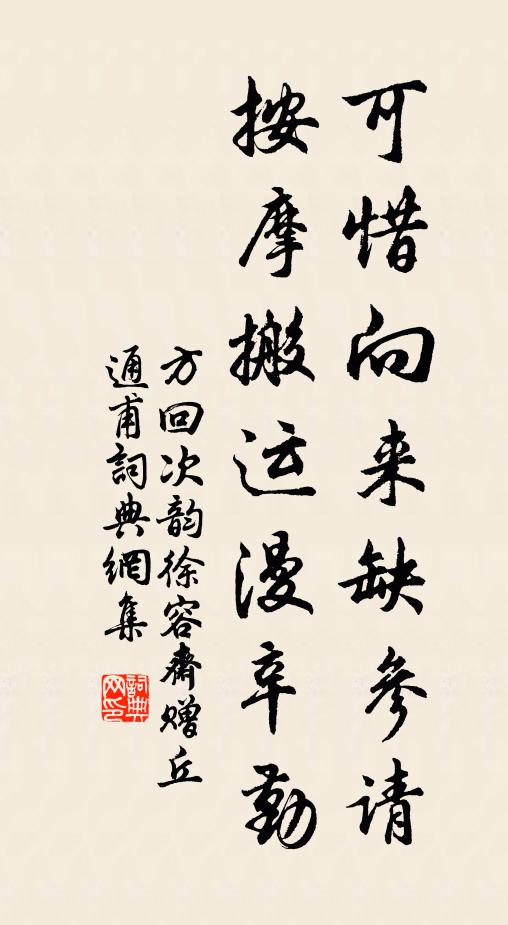 可惜向来缺参请
按摩搬运漫辛勤
方回次韵徐容斋赠丘
通甫詞典網集
詞典
网印